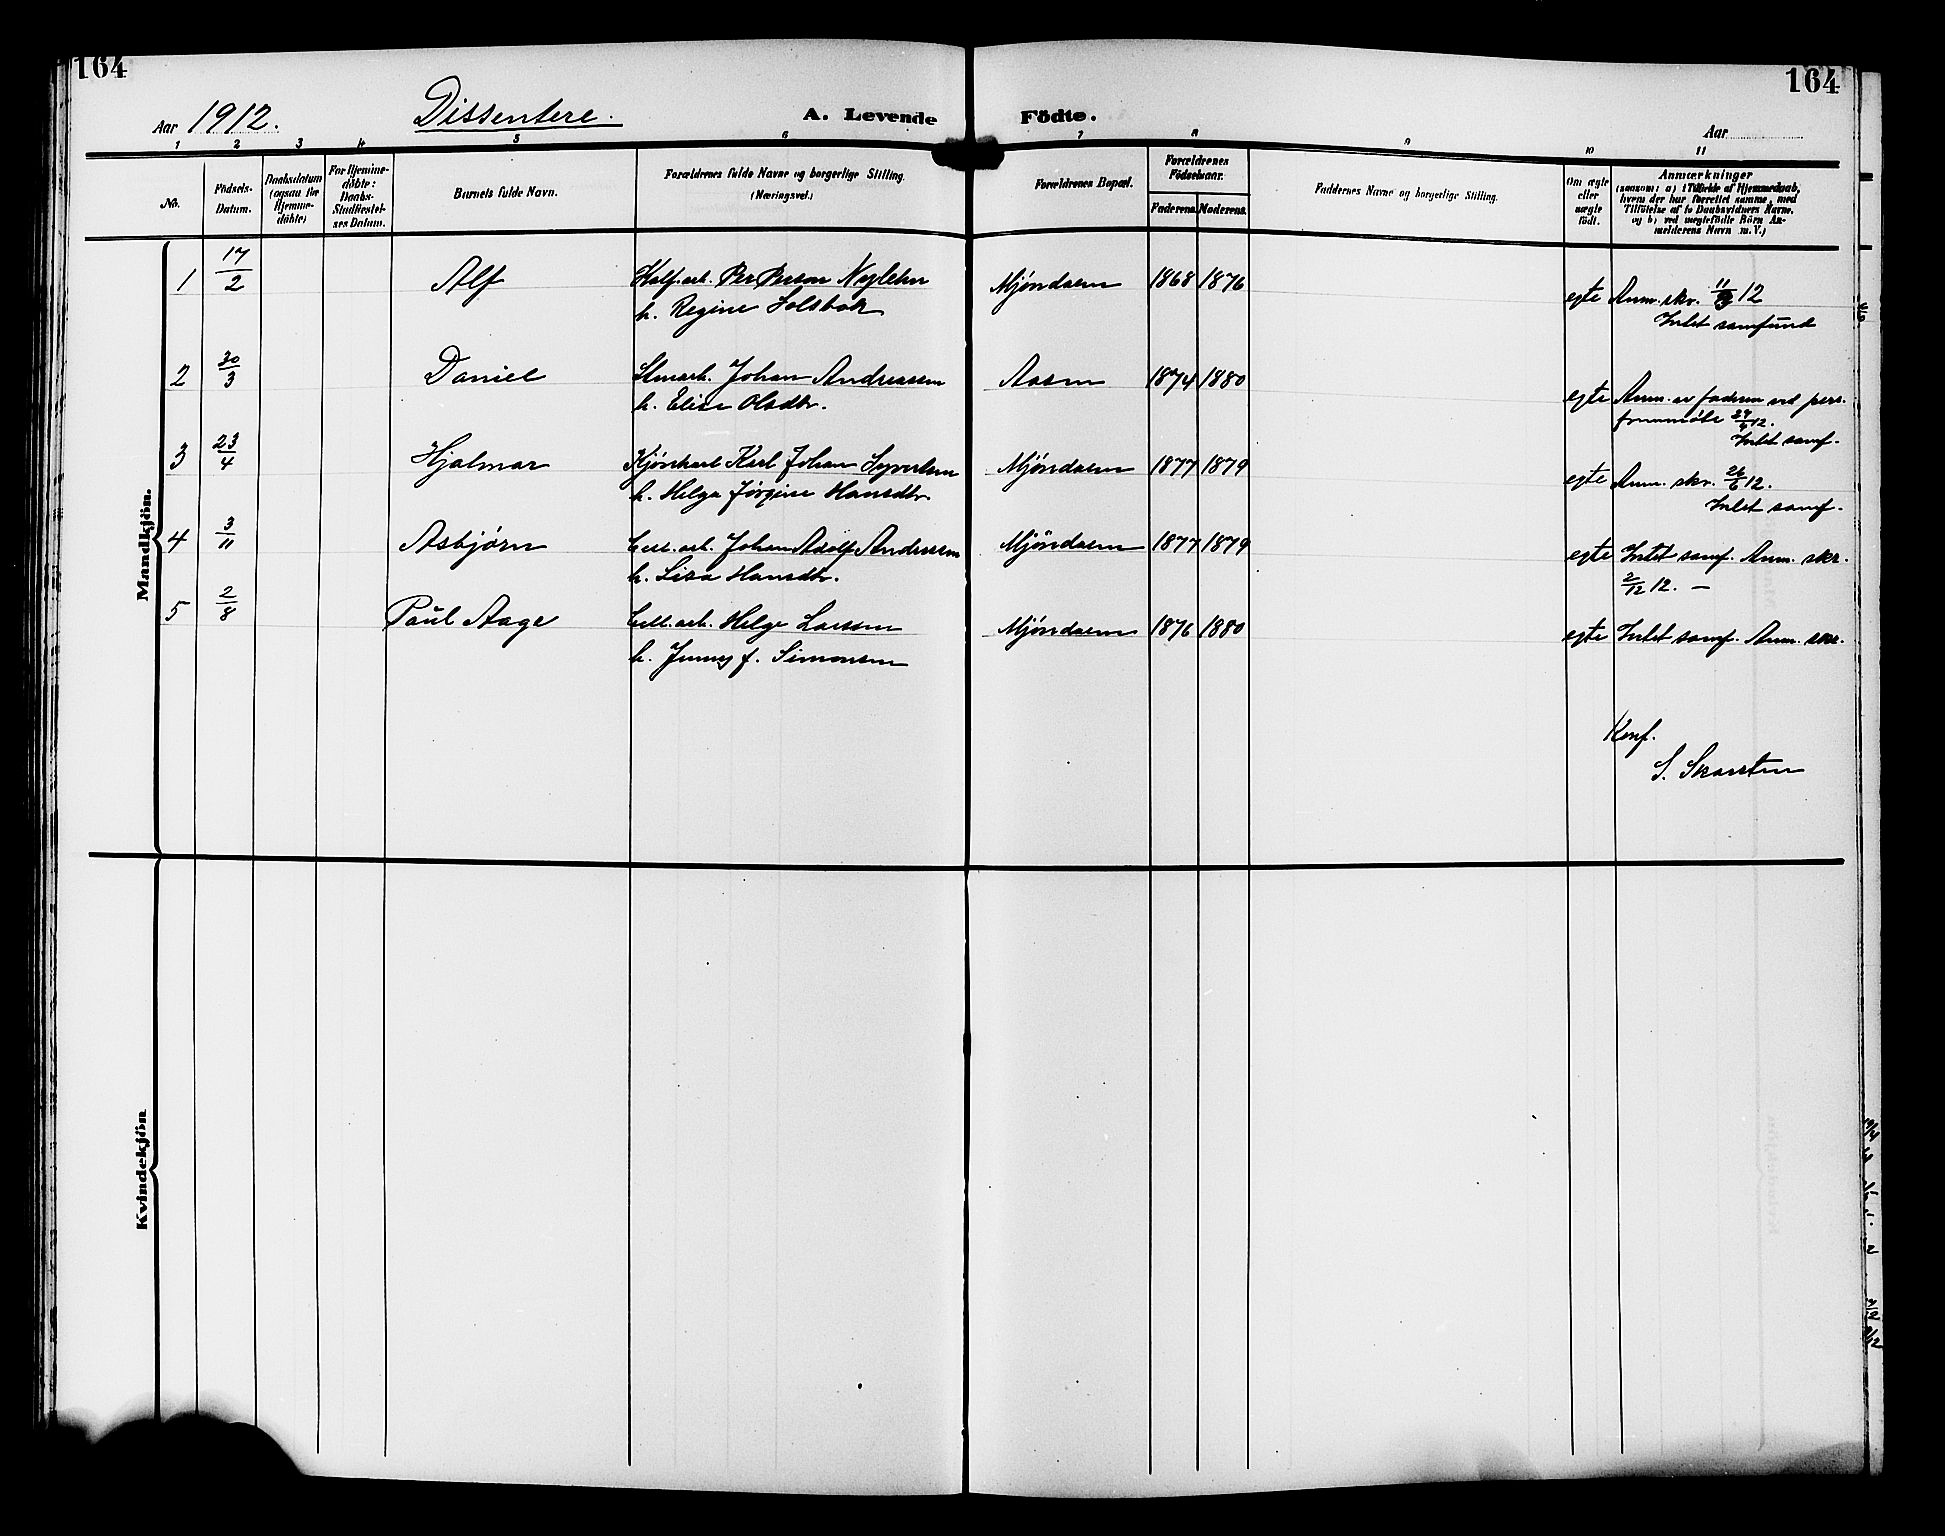 164
164
Aar 1912.
Dissentere.
A. Levende Födte.
Aar
1 2 3 4 5 6 7 8 9 10 11
No.
Födsels-
Datum.
Daabsdatum
(ogsaa for
Hjemme-
döbte)
For Hjemme-
döbte:
Daabs-
Stadfæstel-
ses Datum.
Barnets fulde Navn.
Forældrenes fulde Navne og borgerlige Stilling.
(Næringsvei.)
Forældrenes Bopæl.
Forældrenes
Födselsaar.
Faderens. Moderens.
Faddernes Navne og borgerlige Stilling.
Om ægte
eller
uægte
födt.
Anmærkninger
(saasom: a) i Tilfælde af Hjemmedaab,
hvem der har forrettet samme, med
Tilföielse af to Daabsvidners Navne,
og b) ved uægtefödte Börn An-
melderens Navn m. V.)
Mandkjön.
1 17/2 Alf Per Person Mjöndalen 1868 1876 egte Anm. skr. 12
h. Regine Solsbak Intet samfund
2 30/3 Daniel Johan Andreassen Aasen 1874 1880 egte Anm. av faderen ved pers.
h. Elise Olsdtr. fremmöte 12.
Intet samf.
3 23/4 Hjalmar Karl Johan Syvertsen Mjöndalen 1877 1879 egte Anm. skr. 26/6 12.
h. Helga Jörgine Hansdtr. Intet samf.
4 3/11 Asbjørn Cell.arb. Johan Adolf Andersen Mjöndalen 1877 1879 egte Intet samf. Anm. skr.
h. Lisa Hansdtr. 2/12 12. —
5 2/8 Paul Aage Cell.arb. Helge Larsen Mjöndalen 1876 1880 egte Intet samf. Anm. skr.
h. Jenny f. Simonsen
Konf.
S. Skarsten
Kvindekjön